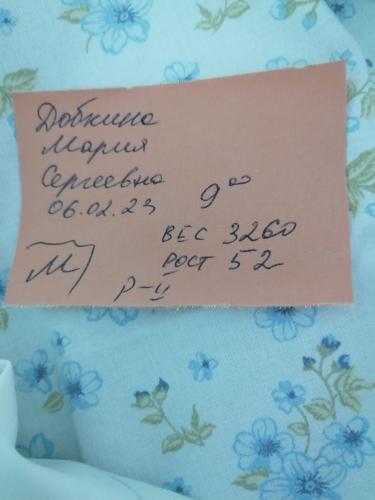 Добкина
Мария
Сергеевна
06.02.23 9⁰⁰
ВЕС 3260
РОСТ 52
М
Р-II